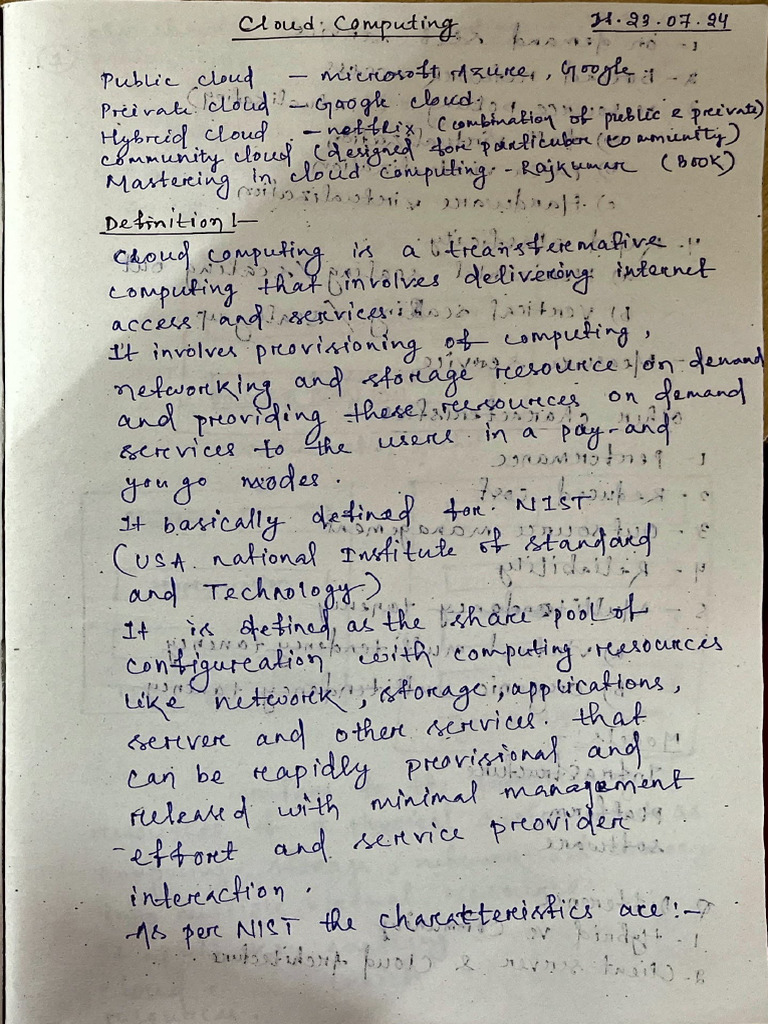 Cloud Computing
23.07.24
Public cloud - microsoft Azure, Google
Private cloud - Google cloud
Hybrid cloud - netflix (combination of public & private)
community cloud (designed for particular community)
Mastering in cloud computing - Rajkumar (Book)
Definition :-
Cloud computing is a transfermative
computing that involves delivering internet
access and services.
It involves provisioning of computing,
networking and storage resource on demand
and providing these ressources on demand
services to the users in a pay-and
you go modes.
It basically defined for NIST
(USA national Institute of standard
and Technology)
It is defined as the share pool of
configuration with computing resources
like network, storage, applications,
server and other services. that
can be rapidly provisional and
released with minimal management
effort and service provider
interaction.
As per NIST the charakteristics are :-